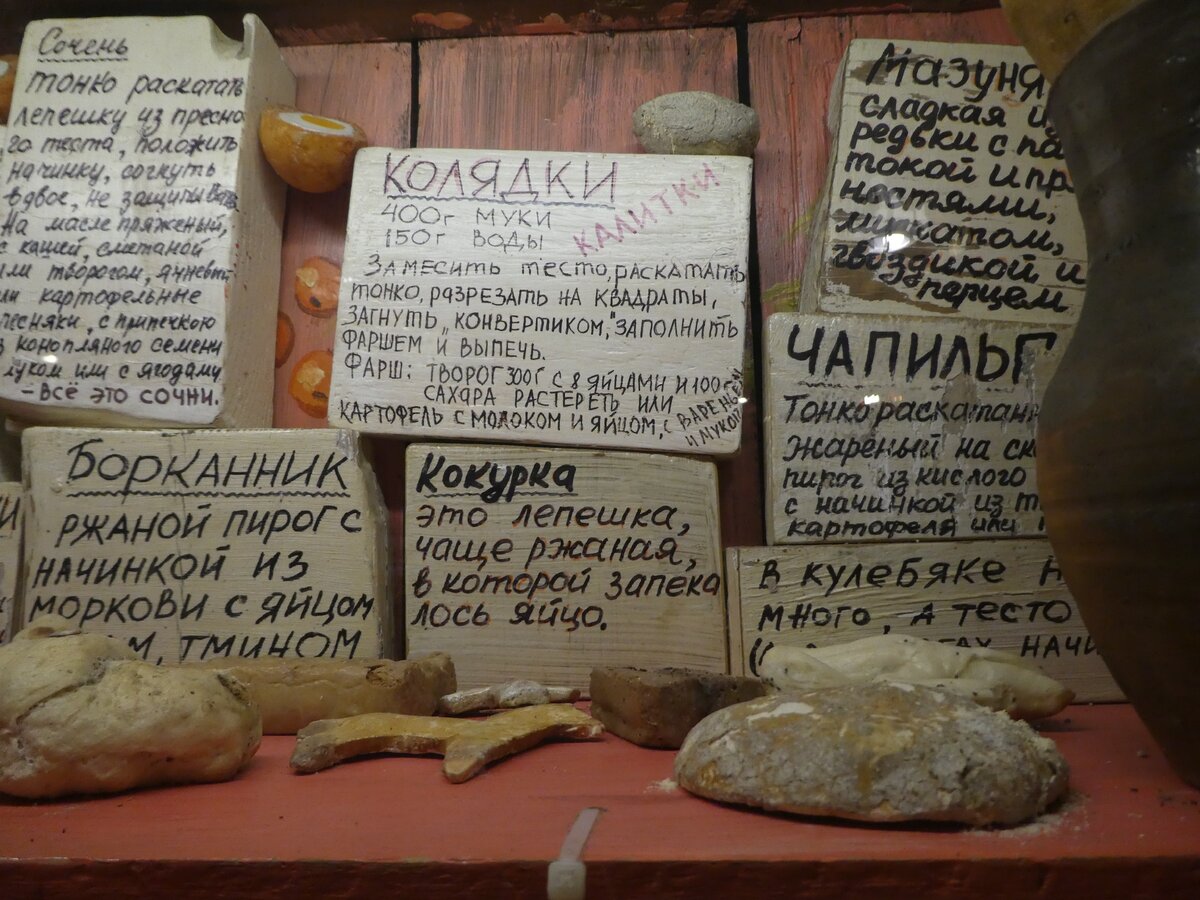 Сочень
тонко раскатать
лепешку из пресно
го теста, положить
начинку, согнуть
вдвое, не защипывать
На масле пряженый,
с кашей, сметаной
или творогом, ячнев
картофельные
песняки, с припечкою
из конопляного семени
луком или с ягодами
- Всё это сочни.
КОЛЯДКИ
КАЛИТКИ
400г МУКИ
150г ВОДЫ
ЗАМЕСИТЬ ТЕСТО, РАСКАТАТЬ
ТОНКО, РАЗРЕЗАТЬ НА КВАДРАТЫ,
ЗАГНУТЬ „КОНВЕРТИКОМ," ЗАПОЛНИТЬ
ФАРШЕМ И ВЫПЕЧЬ.
ФАРШ: ТВОРОГ 300Г С 8 ЯЙЦАМИ И 100г
САХАРА РАСТЕРЕТЬ ИЛИ
КАРТОФЕЛЬ С МОЛОКОМ И ЯЙЦОМ, С ВАРЕНЬЕМ
И МУКОЙ
Мазуня
сладкая и
редьки с па
токой и пр
ностями,
мускатом,
гвоздикой и
перцем
ЧАПИЛЬГ
Тонко раскатан
жареный на ск
пирог из кислого
с начинкой из т
картофеля или
БОРКАННИК
РЖАНОЙ ПИРОГ С
НАЧИНКОЙ ИЗ
МОРКОВИ С ЯЙЦОМ
М, ТМИНОМ
Кокурка
это лепешка,
чаще ржаная,
в которой запека
лось яйцо.
В КУЛЕБЯКЕ Н
МНОГО, А ТЕСТО
НАЧИ